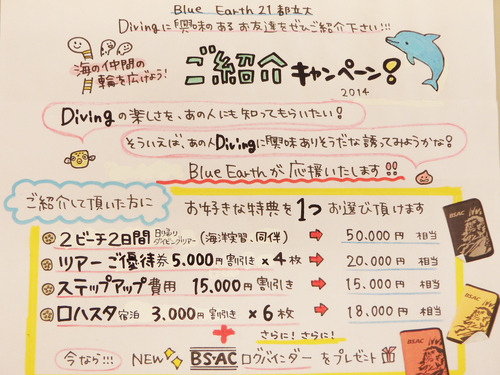 Blue Earth 21 都立大
Divingに興味のあるお友達をぜひご紹介下さい!!!
海の仲間の
輪を広げよう!
ご紹介キャンペーン!
2014
Divingの楽しさを、あの人にも知ってもらいたい!
そういえば、あの人Divingに興味ありそうだな誘ってみようかな?
Blue Earthが応援いたします!!
ご紹介して頂いた方に
お好きな特典を1つお選び頂けます
2ビーチ2日間 日帰りダイビングツアー (海洋実習、同伴) → 50.000円 相当
ツアーご優待券 5.000円割引き×4枚 → 20.000円 相当
ステップアップ費用 15.000円割引き → 15.000円 相当
ロハスタ宿泊 3.000円割引き×6枚 → 18.000円 相当
+ さらに!さらに!
今なら!!! NEW BS・AC ログバインダーをプレゼント
BSAC